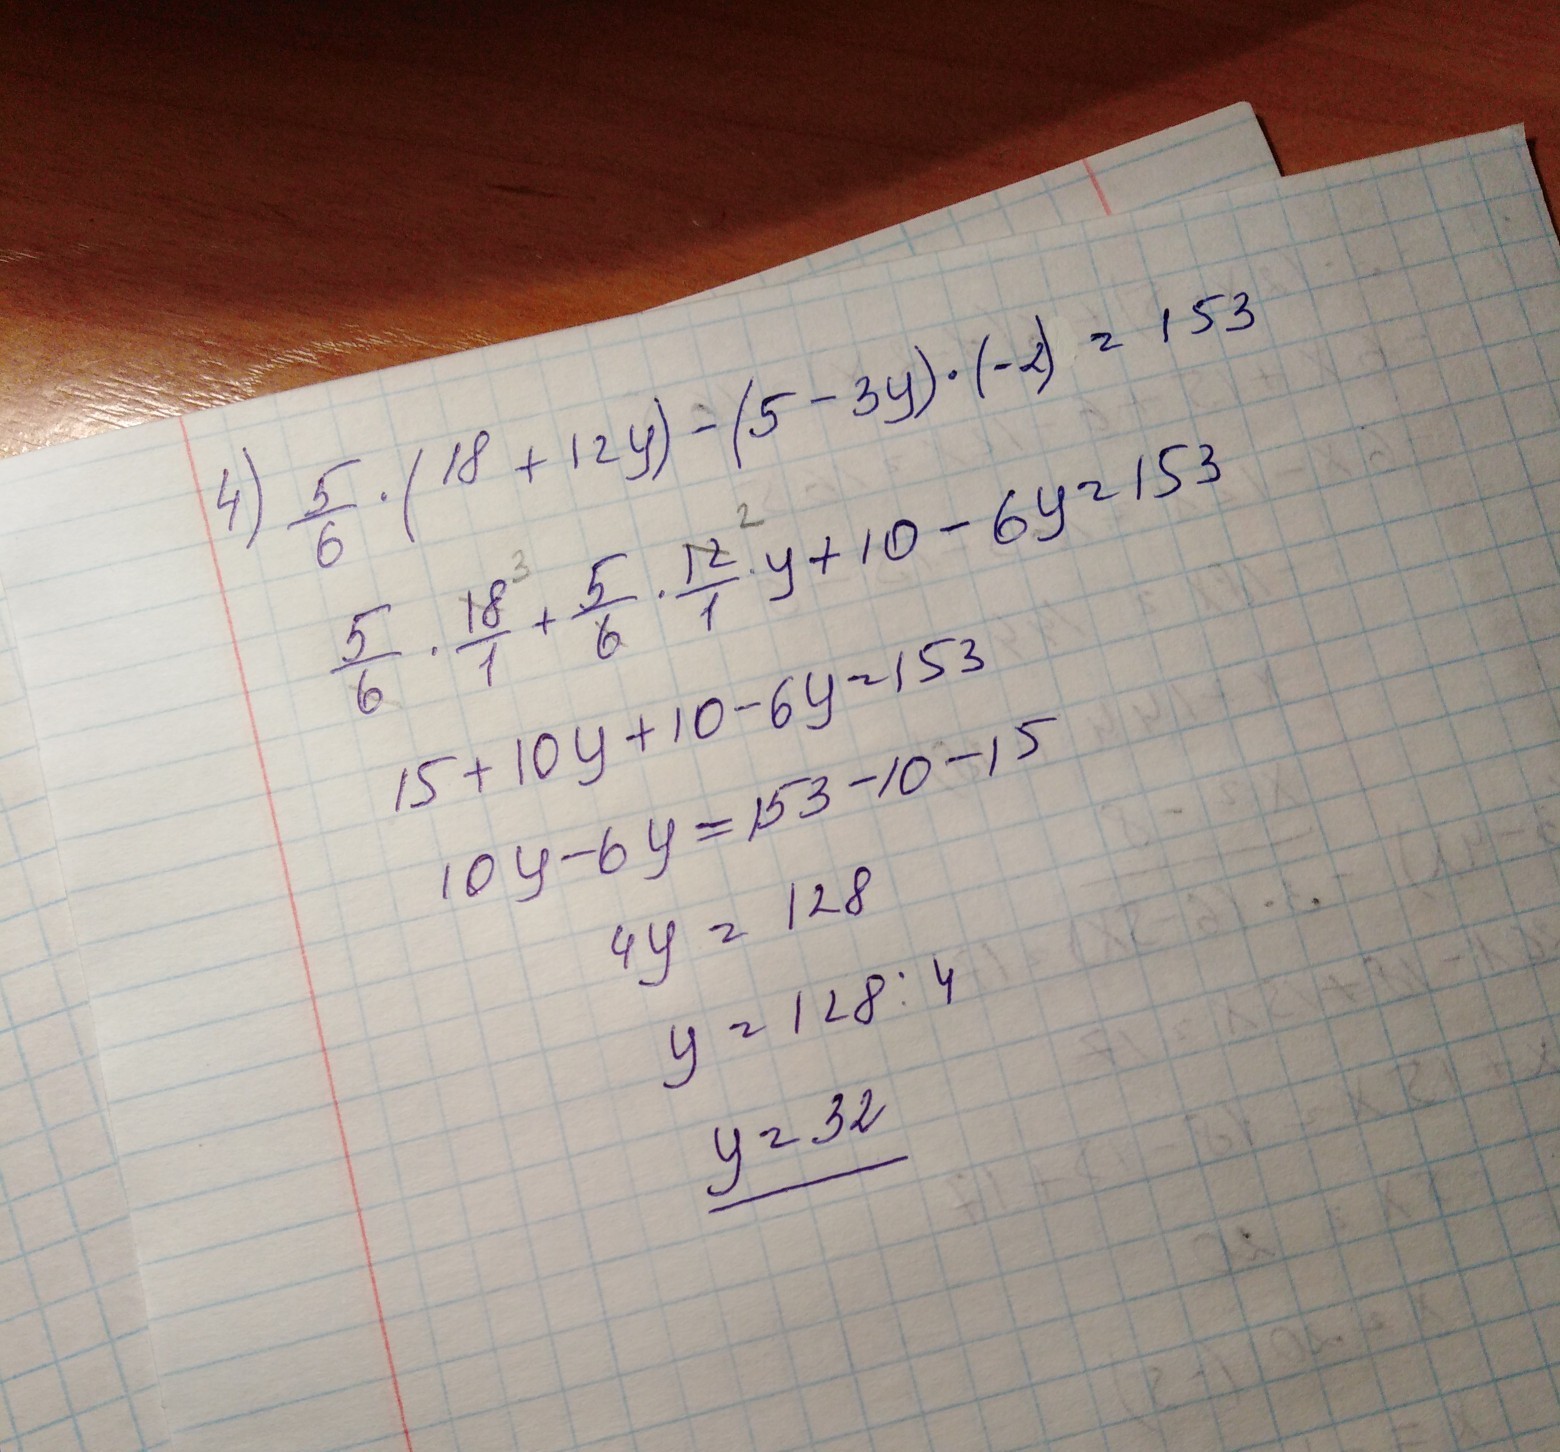 4) 5/6 · (18 + 12y) - (5 - 3y) · (-2) = 153
5/6 · 18/1 ³ + 5/6 · 12/1 ² · y + 10 - 6y = 153
15 + 10y + 10 - 6y = 153
10y - 6y = 153 - 10 - 15
4y = 128
y = 128 : 4
y = 32